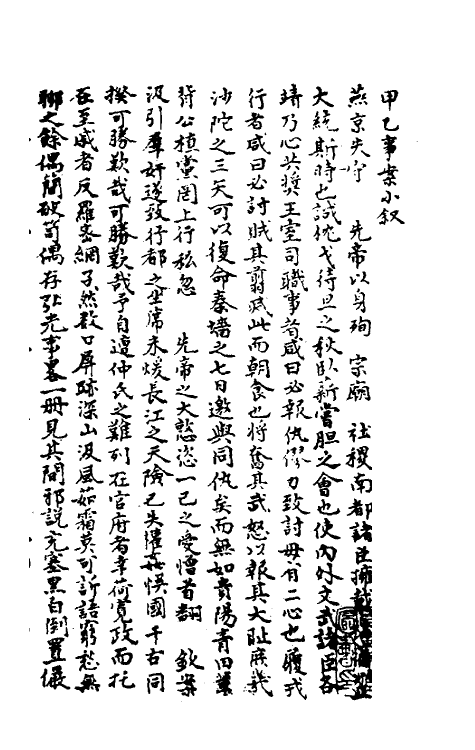 甲乙事案小叙
燕京失守　先帝以身殉　宗廟　社稷南都諸臣擁戴
大統斯時也誠枕戈待旦之秋臥薪嘗胆之會也使內外文武諸臣各
靖乃心共奬王室司職事者咸曰必報仇僇力致討毋有二心也履戎
行者咸曰必討賊其翦滅此而朝食也將奮其武怒以報其大耻庶幾
沙陀之三矢可以復命秦墻之七日邀與同仇矣而無如貴陽青田輩
背公植黨罔上行私忽　先帝之大憝恣一己之愛憎首翻　欽案
汲引羣奸遂致行都之坐席未煖長江之天險已失權姦悞國千古同
揆可勝歎哉可勝歎哉予自遭仲氏之難列在官府者幸荷寬政而托
在至戚者反羅密網孑然數口屏跡深山汲風茹霜莫可訴語窮愁無
聊之餘偶簡破笥偶存弘光事畧一冊見其間邪説充塞黑白倒置儼